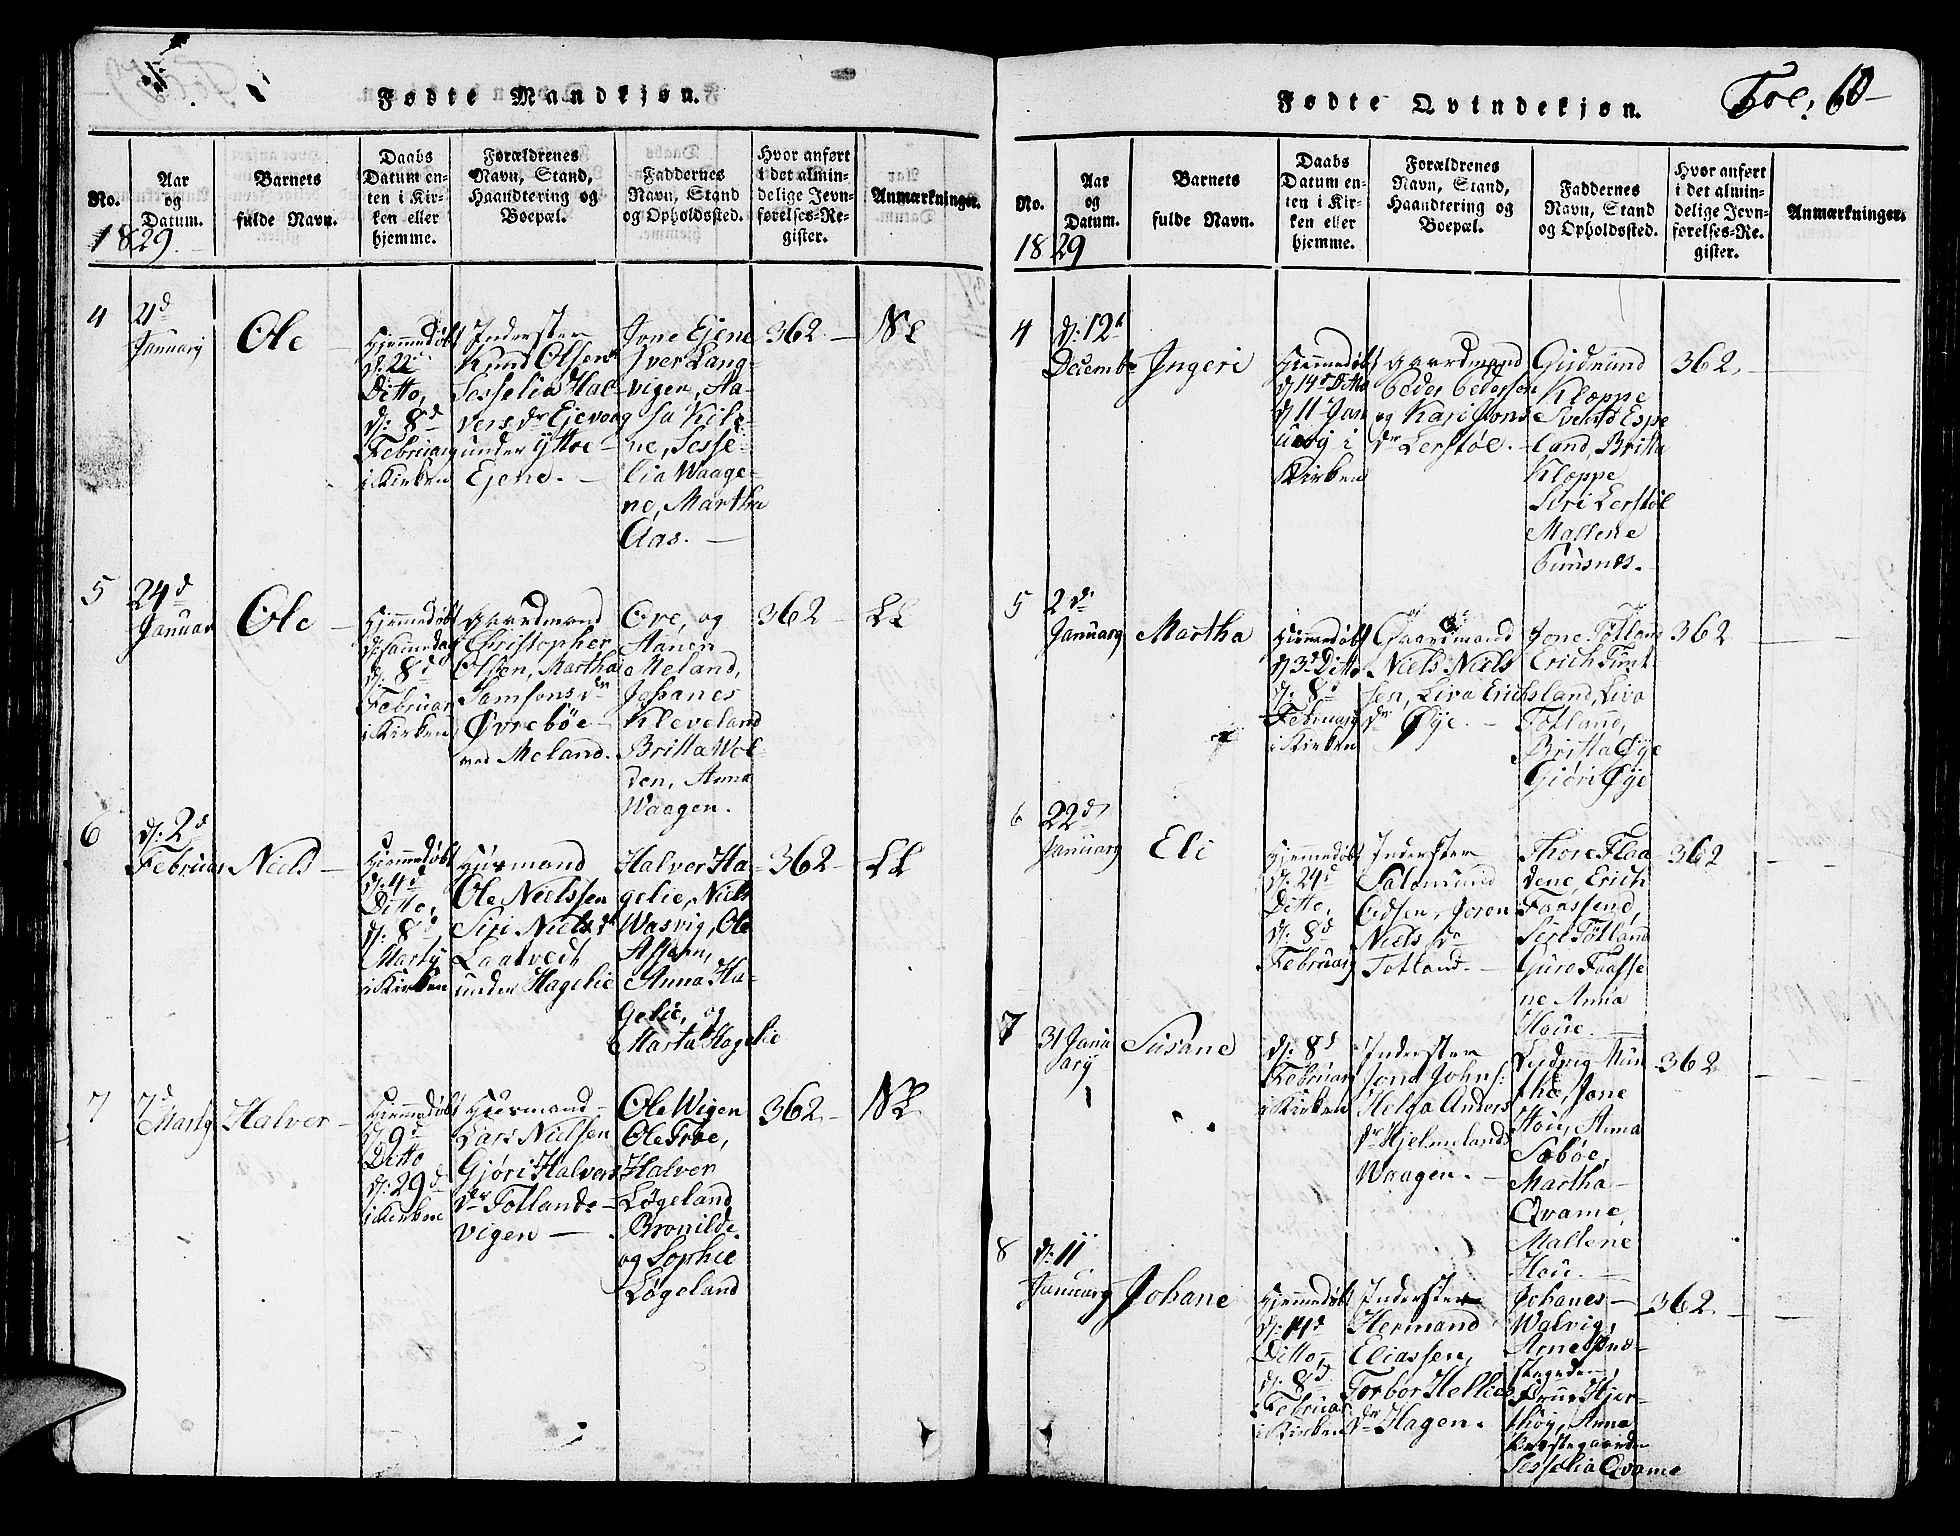 Fødte Mandkjøn.
No.
Aar
og
Datum.
Barnets
fulde Navn.
Daabs
Datum en-
ten i Kir-
ken eller
hjemme.
Forældrenes
Navn, Stand,
Haandtering og
Boepæl.
Faddernes
Navn, Stand
og Opholdssted.
Hvor anført
i det almin-
delige Jevn-
førelses-Re-
gister.
Anmærkninger.
1829.
4
21d
Januarj
Ole
Hjemmedøbt
d: 22
Ditto,
d: 8d
Februarj
i Kirken
Inderster
Knud Olsen
Sesselia Hal-
vers dr Ejevog
under Yttre
Ejene.
Jone Ejene
Iver Lang-
vigen, Aa-
sa Kile-
ne, Sesse-
lia Waage-
ne, Martha
Aas.
362
5
24d
Januar
Ole
Hjemmedøbt
d: 8d
Februar
i Kirken
Gaardmand
Christopher
Olsen, Martha
Samsons dr
Øvrebøe
ved Meland.
Ore, og
Aanen
Meland,
Johanes
Kleveland
Britta Wol-
den, Anna
Waagen.
362
LL
6
d: 2d
Februar
Niels
Hjemmedøbt
d: 4d
Ditto,
d: 8d
Martj
i Kirken
Huusmand
Ole Nielssen
Siri Niels dr
Laatvedt
under Hagelie
Halver Ha-
gelie, Niels
Wasvig, Ole
Anna Ha-
gelie, og
Marta Hagelie
362
LL
7
7d
Martj
Halver
Hjemmedøbt
d: 9d
Ditto
d: 29d
i Kirken
Huusmand
Lars Nielsen
Gjøri Halvers
dr Totlands-
vigen
Ole Wigen
Ole Troe,
Halver
Løgeland
Bronilde
og Sophie
Løgeland
362
Fødte Qvindekjøn.
Fol: 60
No.
Aar
og
Datum.
Barnets
fulde Navn.
Daabs
Datum en-
ten i Kir-
ken eller
hjemme.
Forældrenes
Navn, Stand,
Haandtering og
Boepæl.
Faddernes
Navn, Stand
og Opholdssted.
Hvor anført
i det almin-
delige Jevn-
førelses-Re-
gister.
Anmærkninger.
1829
4
d: 12t
Decembr
Ingeri
Hjemmedøbt
d 14d Ditto
d 11 Jan
uarj i
Kirken
Gaardmand
Peder Pederssen
og Kari Jons
dr Lerstøl.
Gudmund
Kloppe
Svend Espe
land, Britta
Kloppe
Siri Lerstøl
Mallene
362
5
2d
Januarj
Martha
Hjemmedøbt
d 3d Ditto
d: 8d
Februarj
i Kirken
Gaardmand
Niels Niels
sen, Liva Erichs
dr Øye.
Jone Totland
Erich Tunt
land, Liva
Totland,
Britta Øye
Gjøri Øye
362
6
22d
Januarj
Eli
Hjemmedøbt
d: 24d
Ditto,
d: 8d
Februarj
Inderster
Salemund
Edsen, Joron
Niels dr
Totland.
Thore Flaa-
dene, Erich
Faassend,
Seri Totland
Guro Faasse
ne Anna
Houe.
362
7
31 Janu
arj
Susane
d: 8d
Februarj
i Kirken
Inderster
Jone Johns:
Helga Anders
dr Hjelmelands
Waagen.
Ludvig Mun
the, Jone
Houe, Anna
Sæbøe,
Martha
Qvame,
Mallene
Houe.
362
8
d: 11
Januarj
Johane
Hjemmedøbt
d: 14d
Ditto,
d: 8d
Februar
i Kirken
Inderster
Hermand
Eliassen,
Torbor Hellies
dr Hagen.
Johanes
Walvig,
Arne Præ-
stegorden,
Hjer-
thøy, Anna
Præstegaarden
Sesselia Qvame
362